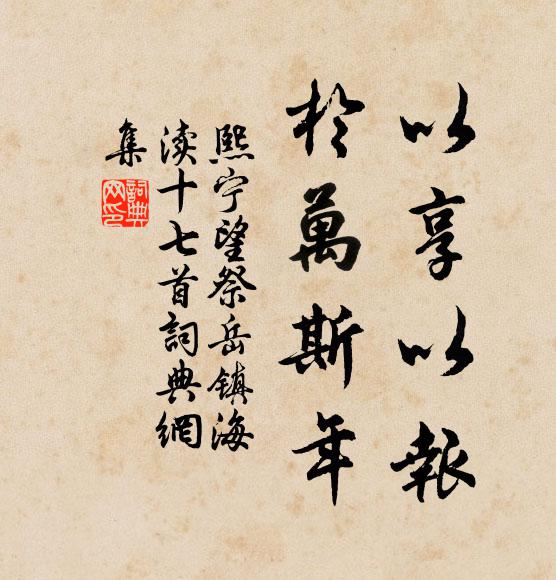 以享以報
於萬斯年
熙宁望祭岳镇海
渎十七首詞典網
集
詞典
网印